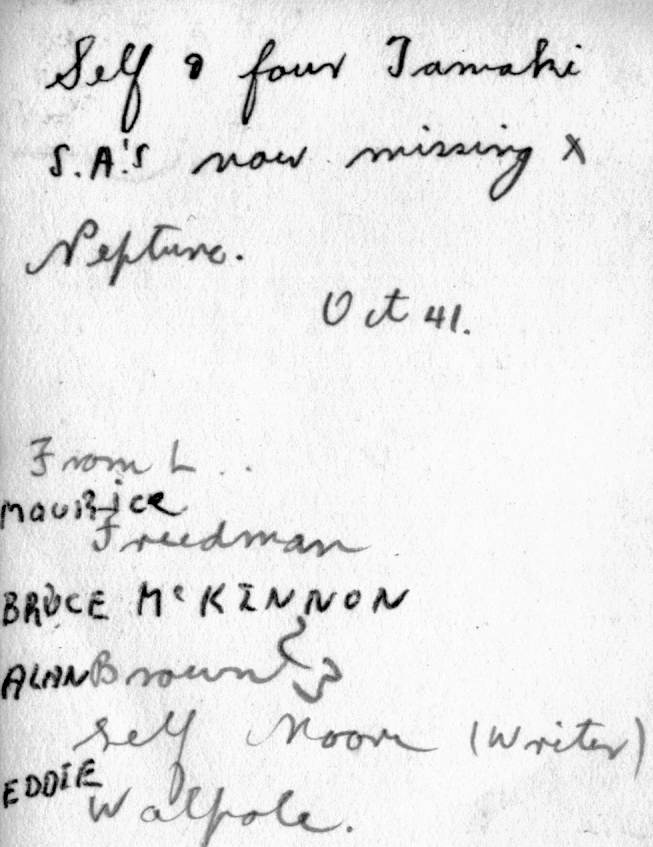 Self & four Tamaki
S.A.'s now missing x
Neptune.
Oct 41.
From L . .
MAURice
Freedman
BRUCE McKINNON
ALAN Brown
Self Moore (Writer)
EDDIE
Walpole.